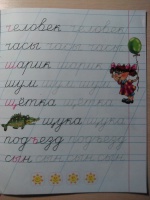 человек человек
часы часы часы
шарик шарик
шум шум шум
щётка щётка
щука щука
подъезд подъезд
сын сын сын сын